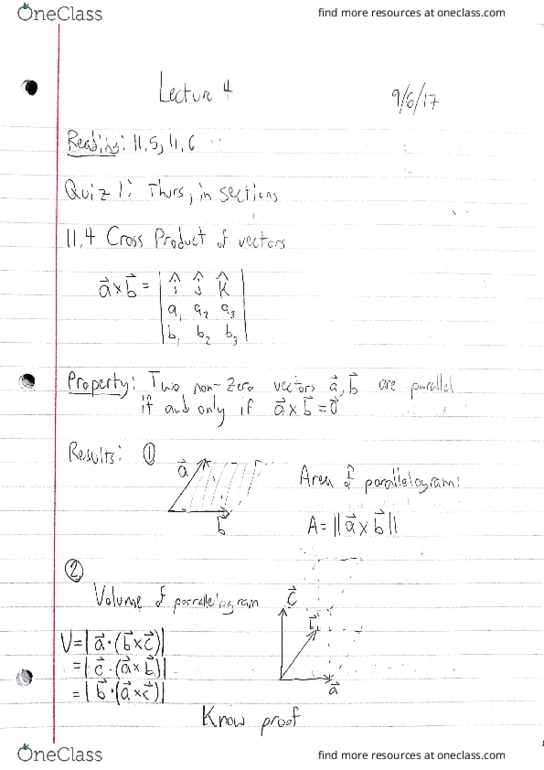 OneClass
find more resources at oneclass.com
Lecture 4
9/6/17
Reading: 11.5, 11.6
Quiz 1: Thurs, in sections
11.4 Cross Product of vectors
a⃗ x b⃗ = | î ĵ k̂ |
| a₁ a₂ a₃ |
| b₁ b₂ b₃ |
Property: Two non-zero vectors a⃗, b⃗ are parallel
if and only if a⃗ x b⃗ = 0⃗
Results: ①
a⃗
b⃗
Area of parallelogram:
A = || a⃗ x b⃗ ||
②
Volume of parrallelogram
V = | a⃗ · (b⃗ x c⃗) |
= | c⃗ · (a⃗ x b⃗) |
= | b⃗ · (a⃗ x c⃗) |
c⃗
b⃗
a⃗
Know proof
OneClass
find more resources at oneclass.com